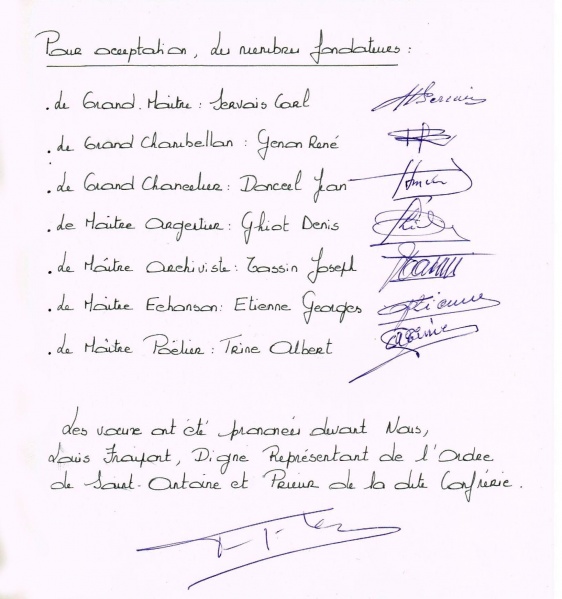 Pour acceptation, les membres fondateurs :
. Le Grand-Maitre : Servais Carl
. Le Grand Chambellan : Genon René
. Le Grand Chancelier : Donceel Jean
. Le Maitre Argentier : Ghiot Denis
. Le Maître Archiviste : Tassin Joseph
. Le Maitre Echanson : Etienne Georges
. Le Maître Poëlier : Trine Albert
Les voeux ont été prononcés devant Nous,
Louis Fraipont, Digne Représentant de l'Ordre
de Saint-Antoine et Prieur de la dite Confrérie.